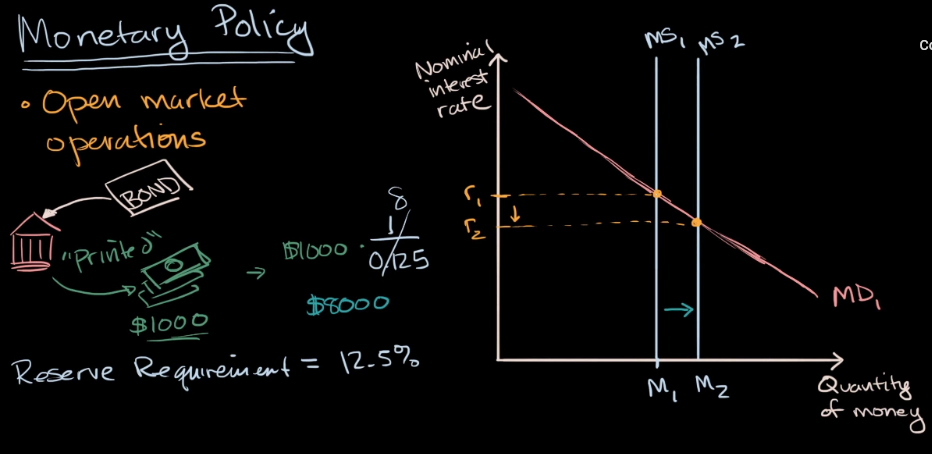 Monetary Policy
• Open market
operations
BOND
"Printed"
$1000
→ $1000 · 1/0.125
8
$8000
Reserve Requirement = 12.5%
Nominal
interest
rate
MS1
MS2
r1
r2
MD1
M1
M2
Quantity
of money
Co